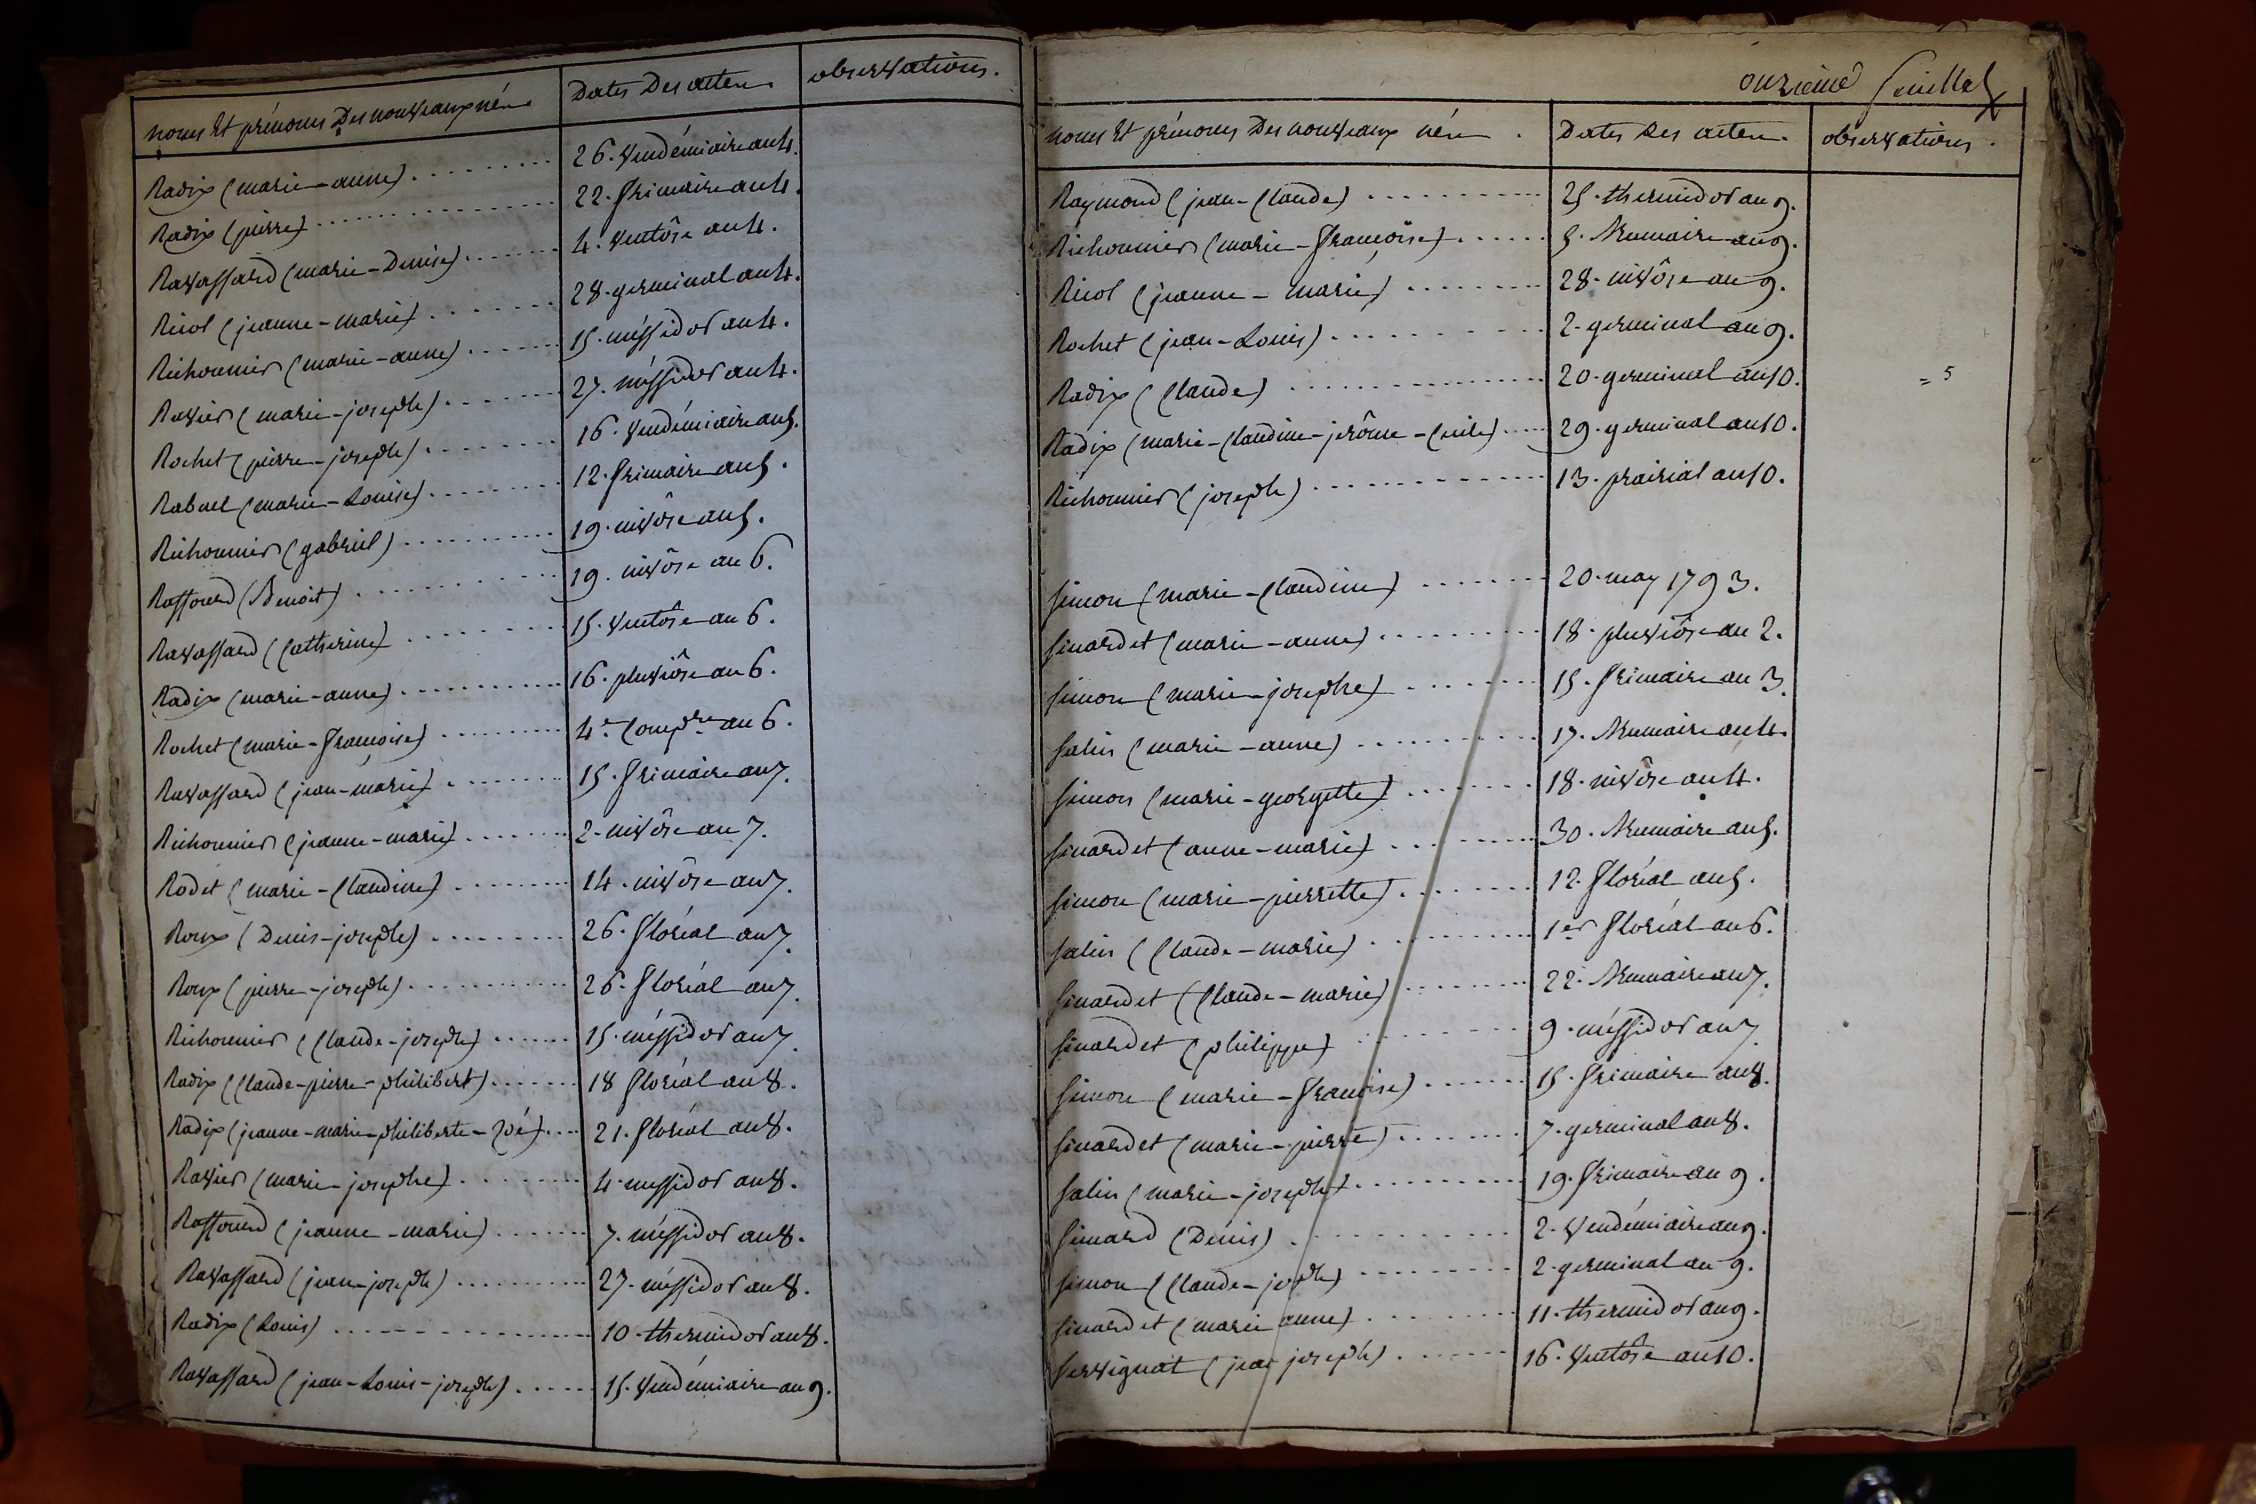 noms Et prénoms Des nouveaux nés
Dates Des actes
observations.
Radix (marie-anne) 26. Vendémiaire an 4.
Radix (pierre) 22. frimaire an 4.
Ravassard (marie-Denise) 4. Ventôse an 4.
Ricol (jeanne-marie) 28. germinal an 4.
Richonnier (marie-anne) 15. méssidor an 4.
Ravier (marie-joseph) 27. méssidor an 4.
Rochet (pierre-joseph) 16. Vendémiaire an 5.
Rabuel (marie-Louise) 12. frimaire an 5.
Richonnier (gabriel) 19. nivôse an 5.
Raffourd (Benoit) 19. nivôse an 6.
Ravassard (Catherine) 15. Ventôse an 6.
Radix (marie-anne) 16. pluviôse an 6.
Rochet (marie-françoise) 4.e Comp.re an 6.
Ravassard (jean-marie) 15. frimaire an 7.
Richonnier (jeanne-marie) 2. nivôse an 7.
Rodet (marie-Claudine) 14. nivôse an 7.
Roux (Denis-joseph) 26. floréal an 7.
Roux (pierre-joseph) 26. floréal an 7.
Richonnier (Claude-joseph) 15. méssidor an 7.
Radix (Claude-pierre-philibert) 18 floréal an 8.
Radix (jeanne-marie-philiberte-Zoé) 21. floréal an 8.
Ravier (marie-josephe) 4. messidor an 8.
Raffourd (jeanne-marie) 7. méssidor an 8.
Ravassard (jean-joseph) 27. méssidor an 8.
Radix (Louis) 10. thermidor an 8.
Ravassard (jean-Louis-joseph) 15. Vendémiaire an 9.
onzième feuillet
noms Et prénoms Des nouveaux nés.
Dates des actes.
observations.
Raymond (jean-Claude) 25. thermidor an 9.
Richonnier (marie-françoise) 5. Brumaire an 9.
Ricol (jeanne-marie) 28. nivôse an 9.
Rochet (jean-Louis) 2. germinal an 9.
Radix (Claude) 20. germinal an 10. = 5
Radix (marie-Claudine-jerôme-Cécile) 29. germinal an 10.
Richonnier (joseph) 13. prairial an 10.
Simon (marie-Claudine) 20. may 1793.
Sinardet (marie-anne) 18. pluviôse an 2.
Simon (marie-josephe) 15. frimaire an 3.
Salin (marie-anne) 17. Brumaire an 4.
Simon (marie-georgette) 18. nivôse an 4.
Sinardet (anne-marie) 30. Brumaire an 5.
Simon (marie-pierrette) 12. floréal an 5.
Salin (Claude-marie) 1er floréal an 6.
Sinardet (Claude-marie) 22. Brumaire an 7.
Sinardet (philippe) 9. méssidor an 7
Simon (marie-françoise) 15. frimaire an 8.
Sinardet (marie-pierre) 7. germinal an 8.
Salin (marie-joseph) 19. frimaire an 9.
Simard (Denis) 2. Vendémiaire an 9.
Simon (Claude-joseph) 2. germinal an 9.
Sinardet (marie anne) 11. thermidor an 9.
Servignat (jean joseph) 16. Ventôse an 10.